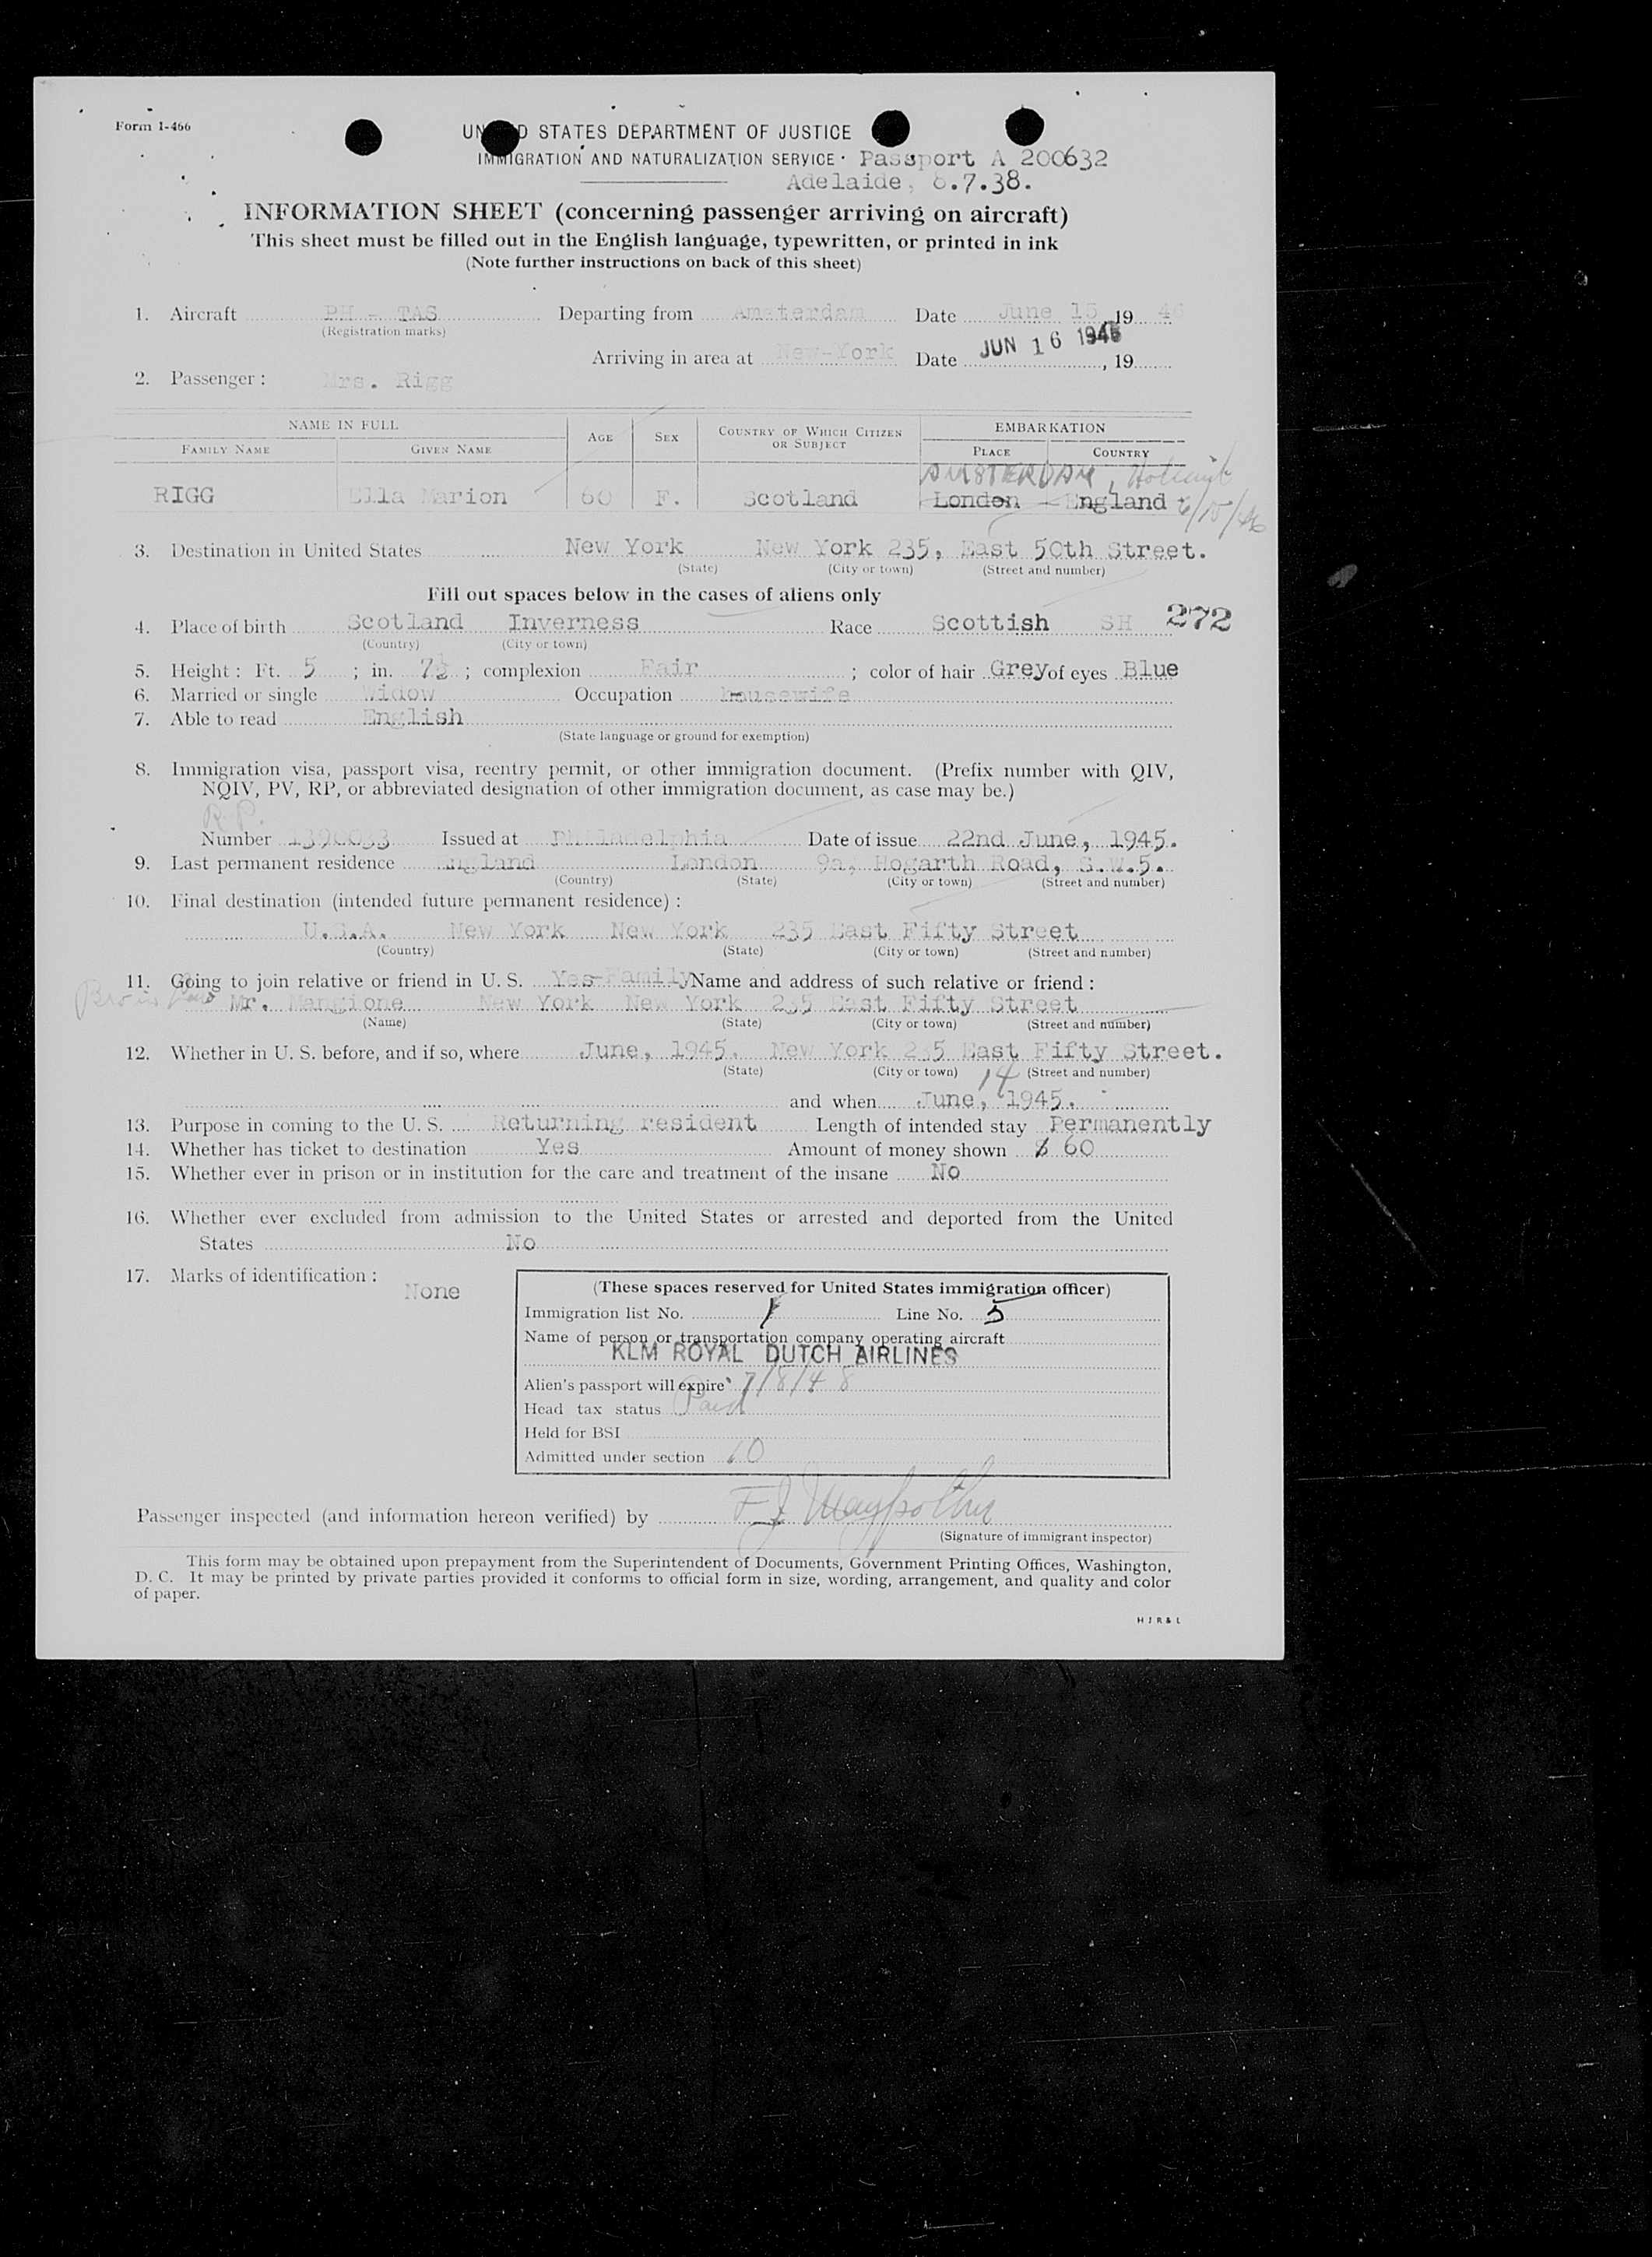 Form I-466
UNITED STATES DEPARTMENT OF JUSTICE
IMMIGRATION AND NATURALIZATION SERVICE Passport A 200632
Adelaide, 8.7.38.
INFORMATION SHEET (concerning passenger arriving on aircraft)
This sheet must be filled out in the English language, typewritten, or printed in ink
(Note further instructions on back of this sheet)
1. Aircraft PH - TAS Departing from Amsterdam Date June 15, 19 46
(Registration marks)
Arriving in area at New-York Date JUN 16 1946, 19
2. Passenger: Mrs. Rigg
NAME IN FULL AGE SEX COUNTRY OF WHICH CITIZEN OR SUBJECT EMBARKATION
FAMILY NAME GIVEN NAME PLACE COUNTRY
AMSTERDAM,
RIGG Ella Marion 60 F. Scotland London - England 6/15/46
3. Destination in United States New York New York 235, East 50th Street.
(State) (City or town) (Street and number)
Fill out spaces below in the cases of aliens only
4. Place of birth Scotland Inverness Race Scottish SH 272
(Country) (City or town)
5. Height: Ft. 5 ; in. 7½ ; complexion Fair ; color of hair Grey of eyes Blue
6. Married or single Widow Occupation housewife
7. Able to read English
(State language or ground for exemption)
8. Immigration visa, passport visa, reentry permit, or other immigration document. (Prefix number with QIV,
NQIV, PV, RP, or abbreviated designation of other immigration document, as case may be.)
R.P.
Number 1390033 Issued at Philadelphia Date of issue 22nd June, 1945.
9. Last permanent residence England London 9a, Hogarth Road, S.W.5.
(Country) (State) (City or town) (Street and number)
10. Final destination (intended future permanent residence):
U.S.A. New York New York 235 East Fifty Street
(Country) (State) (City or town) (Street and number)
11. Going to join relative or friend in U. S. Yes-Family Name and address of such relative or friend:
Mr. Mangione New York New York 235 East Fifty Street
(Name) (State) (City or town) (Street and number)
12. Whether in U. S. before, and if so, where June, 1945. New York 235 East Fifty Street.
(State) (City or town) (Street and number)
14
and when June, 1945.
13. Purpose in coming to the U. S. Returning resident Length of intended stay Permanently
14. Whether has ticket to destination Yes Amount of money shown $ 60
15. Whether ever in prison or in institution for the care and treatment of the insane No
16. Whether ever excluded from admission to the United States or arrested and deported from the United
States No
17. Marks of identification:
None
(These spaces reserved for United States immigration officer)
Immigration list No. 1 Line No. 5
Name of person or transportation company operating aircraft
KLM ROYAL DUTCH AIRLINES
Alien's passport will expire 7/8/48
Head tax status Paid
Held for BSI
Admitted under section
Passenger inspected (and information hereon verified) by
(Signature of immigrant inspector)
This form may be obtained upon prepayment from the Superintendent of Documents, Government Printing Offices, Washington,
D. C. It may be printed by private parties provided it conforms to official form in size, wording, arrangement, and quality and color
of paper.
H J R & L